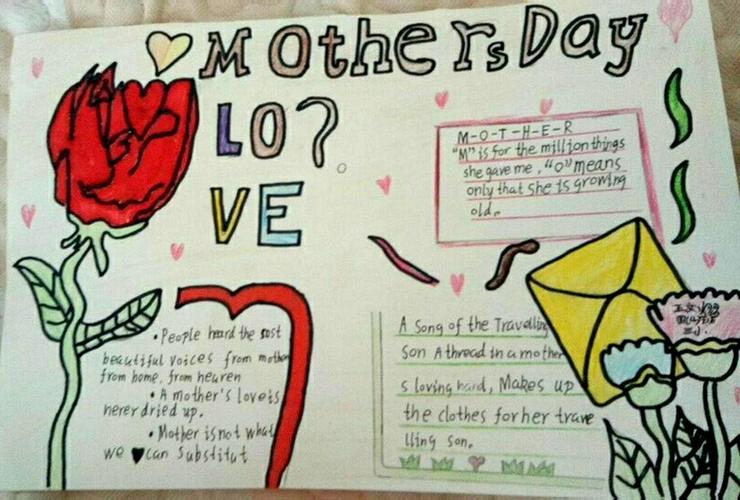 Mothers Day
LO?
VE
M-O-T-H-E-R
"M" is for the million things
she gave me, "O" means
only that she is growing
old.
A Song of the Travelling
Son A thread in a mother
s loving hand, Makes up
the clothes for her trave
lling son.
• People heard the
beautiful voices from mother
from home, from heaven
• A mother's love is
never dried up.
• Mother is not what
we can Substitut